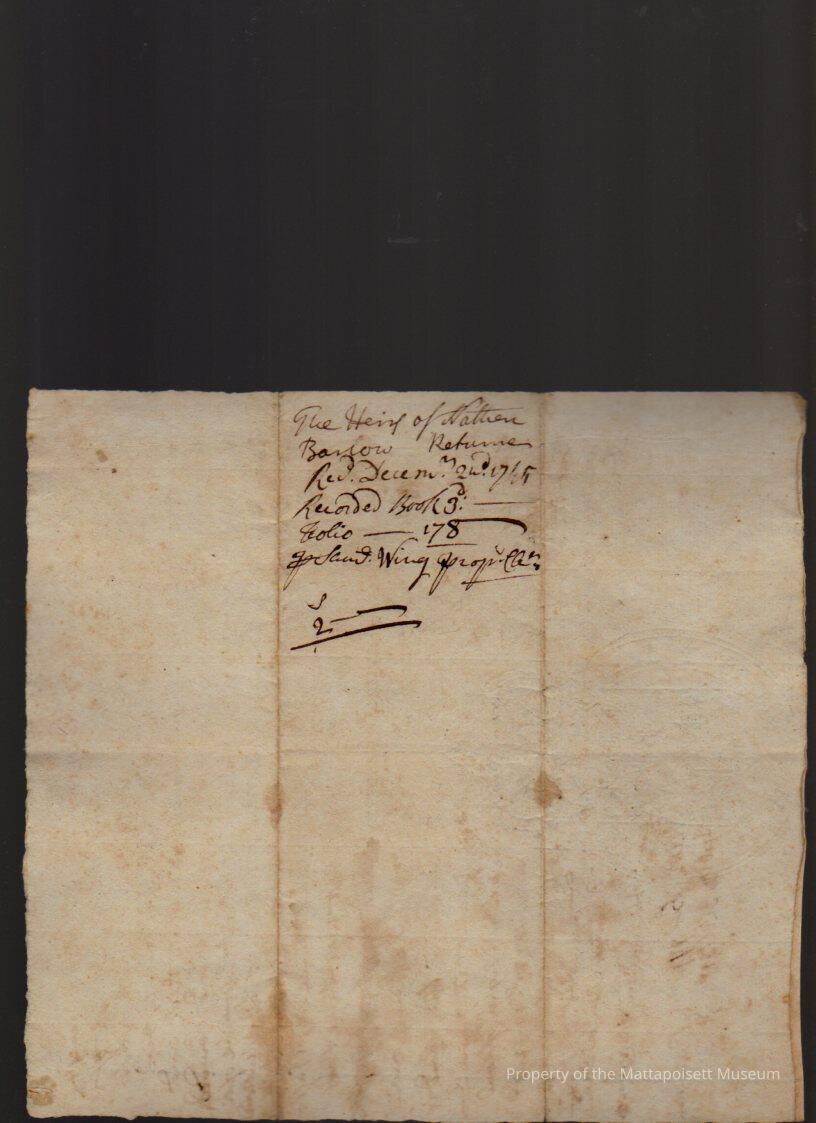 The Heirs of Nathen
Barlow Returne
Recd. Decemr. 2nd. 1765
Recorded Book 3d.
Folio — 178
Wing propr. Cler
s
2
Property of the Mattapoisett Museum